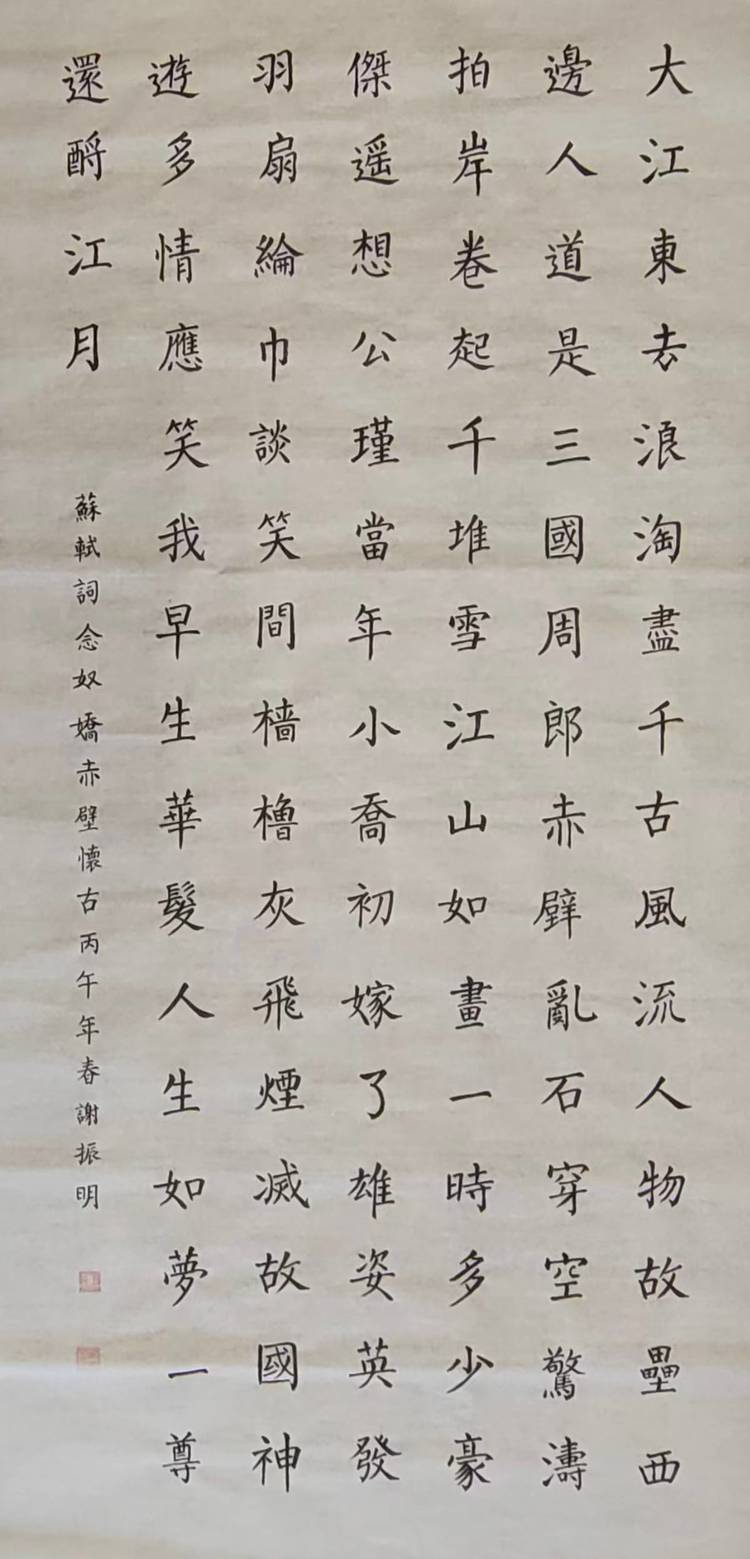 大江東去浪淘盡千古風流人物故壘西
邊人道是三國周郎赤壁亂石穿空驚濤
拍岸卷起千堆雪江山如畫一時多少豪
傑遥想公瑾當年小喬初嫁了雄姿英發
羽扇綸巾談笑間檣櫓灰飛煙滅故國神
遊多情應笑我早生華髮人生如夢一尊
還酹江月
蘇軾詞念奴嬌赤壁懷古丙午年春謝振明